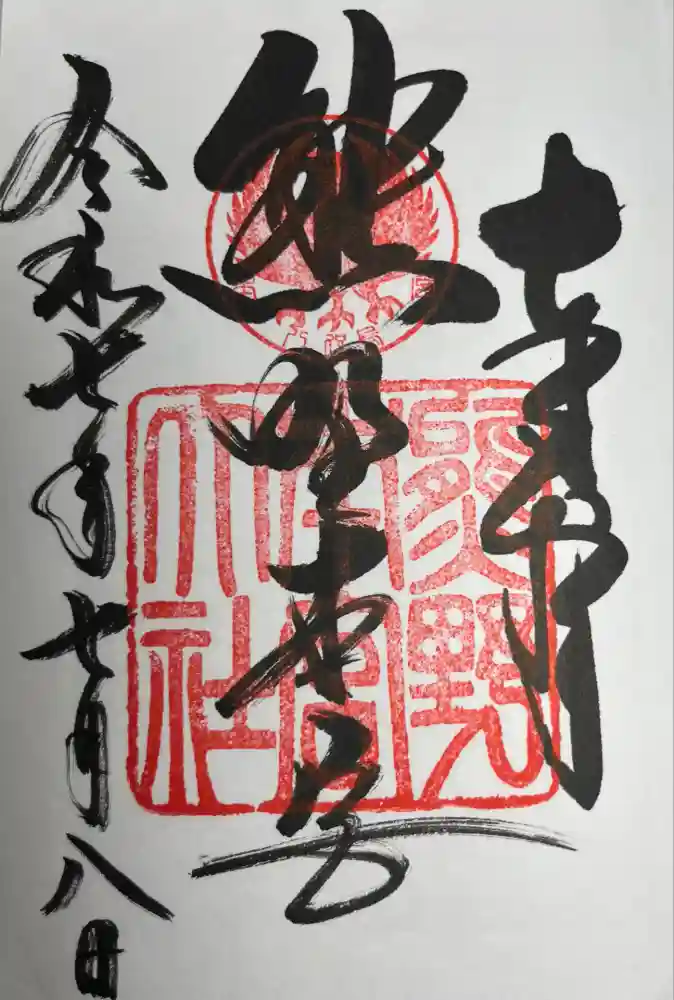 奉拝
熊野本宮
令和七年七月八日
熊野
本宮
大社